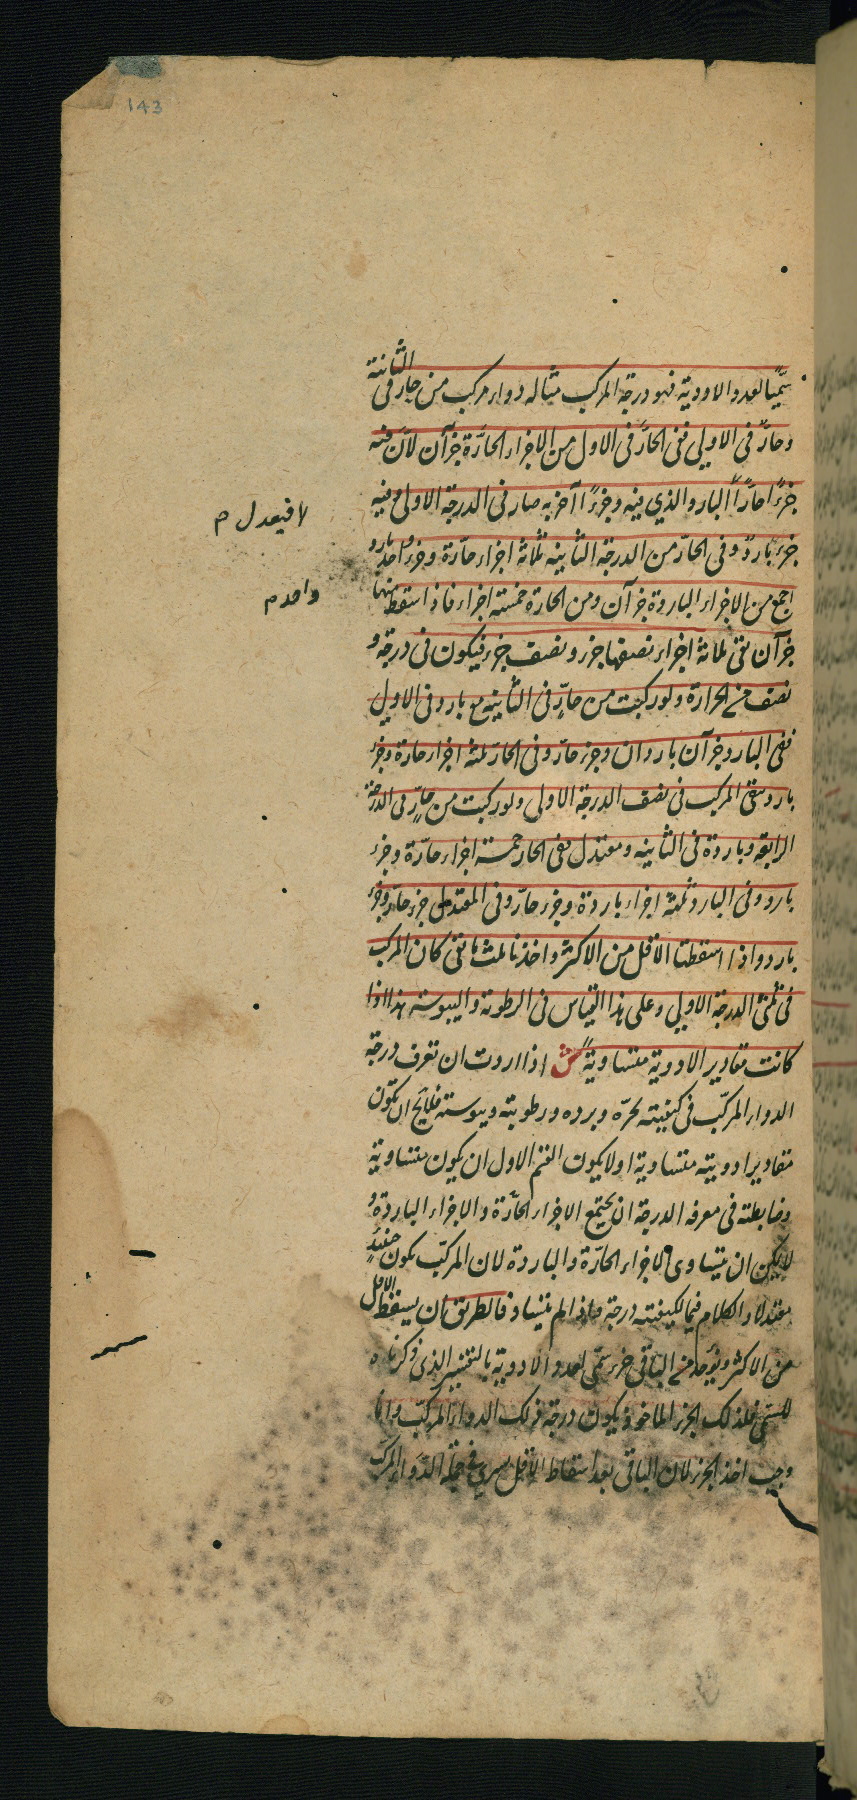 143
سمّيًا لعدد الادوية فهو درجة المركب مثاله دواء مركب من حار فى الثانية
وحارّ فى الاولى ففى الحارّ فى الاول من الاجزاء الحارّة جزآن لأن فيه
جزءًا حارًّا البارد الذي فيه وجزءًا آخر به صار فى الدرجة الاولى وفيه
جزء باردّ وفى الحارّ من الدرجة الثانيه ثلثة اجزاء حارّة وجزء واحد بارد
اجمع من الاجزاء الباردة جزآن ومن الحارة خمسة اجزاء فاذا اسقط منها
جزآن بقى ثلاثة اجزاء نصفها جزء ونصف جزء فيكون فى درجة و
نصف من الحرارة ولو ركبت من حارٍّ فى الثانيه مع بارد فى الاولى
ففى البارد جزآن باردان وجزء حارّ وفى الحارّ ثلثة اجزاء حارة وجزء
بارد بقى المركب فى نصف الدرجة الاولى ولو ركبت من حارٍّ فى الدرجة
الرابعة وباردة فى الثانيه ومعتدل ففى الحار خمسة اجزاء حارّة وجزء
بارد وفى البارد ثلثة اجزاء باردة وجزء حارّ وفى المعتدل جزء حارّ وجزء
بارد واذا اسقطنا الاقل من الاكثر واخذنا ثلث ما بقى كان المركب
فى ثلثى الدرجة الاولى وعلى هذا القياس فى الرطوبة واليبوسة هذا اذا
كانت مقادير الادوية متساويةً ش اذا اردت ان تعرف درجة
الدواء المركّب فى كيفيته بحرّه وبرده ورطوبته ويبوسته فلايخ ان يكون
مقادير ادويته متساوية اولا يكون القسم الاول ان يكون متساوية
وضابطته فى معرفه الدرجة ان يجتمع الاجزاء الحارّة والاجزاء الباردة و
لايمكن ان يتساوى الاجزاء الحارّة والباردة لان المركّب يكون حينئذٍ
معتدلا والكلام فيما لكيفيته درجة واذا لم يتساو فالطريق ان يسقط الاقل
من الاكثر ويؤخذ من الباقى جزء سمّى لعدد الادوية بالتفسير الذى ذكرناه
للسمّى فلذلك الجزء الماخوذ يكون درجة ذلك الدواء المركّب وانما
وجب اخذ الجزء لان الباقى بعد اسقاط الاقل يسرى فى جملة الدواء المركّب
لا فيعدل م
واحد م